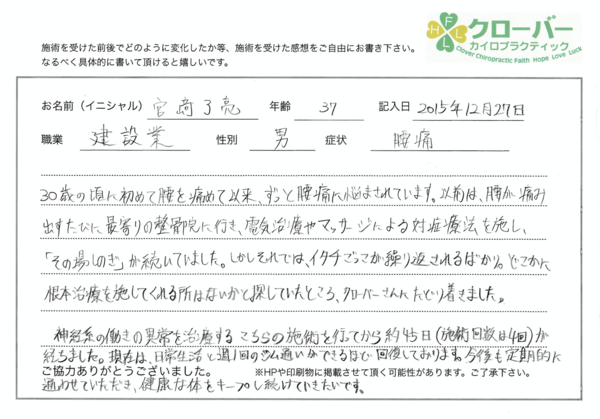 施術を受けた前後でどのように変化したか等、施術を受けた感想をご自由にお書き下さい。
なるべく具体的に書いて頂けると嬉しいです。
FHLL
クローバー
カイロプラクティック
Clover Chiropractic Faith Hope Love Luck
お名前（イニシャル） 宮崎了亮 年齢 37 記入日 2015年12月27日
職業 建設業 性別 男 症状 腰痛
30歳の頃に初めて腰を痛めて以来、ずっと腰痛に悩まされています。以前は、腰が痛み
出すたびに最寄りの整骨院に行き、電気治療やマッサージによる対症療法を施し、
「その場しのぎ」が続いていました。しかしそれでは、イタチごっこが繰り返されるばかり。どこかに
根本治療を施してくれる所はないかと探していたところ、クローバーさんにたどり着きました。
神経系の働きの異常を治療するこちらの施術を行ってから約45日(施術回数は4回)が
経ちました。現在は、日常生活と週1回のジム通いができるほど回復しております。今後も定期的に
ご協力ありがとうございました。 ※HPや印刷物に掲載させて頂く可能性があります。ご了承下さい。
通わせていただき、健康な体をキープし続けていきたいです。